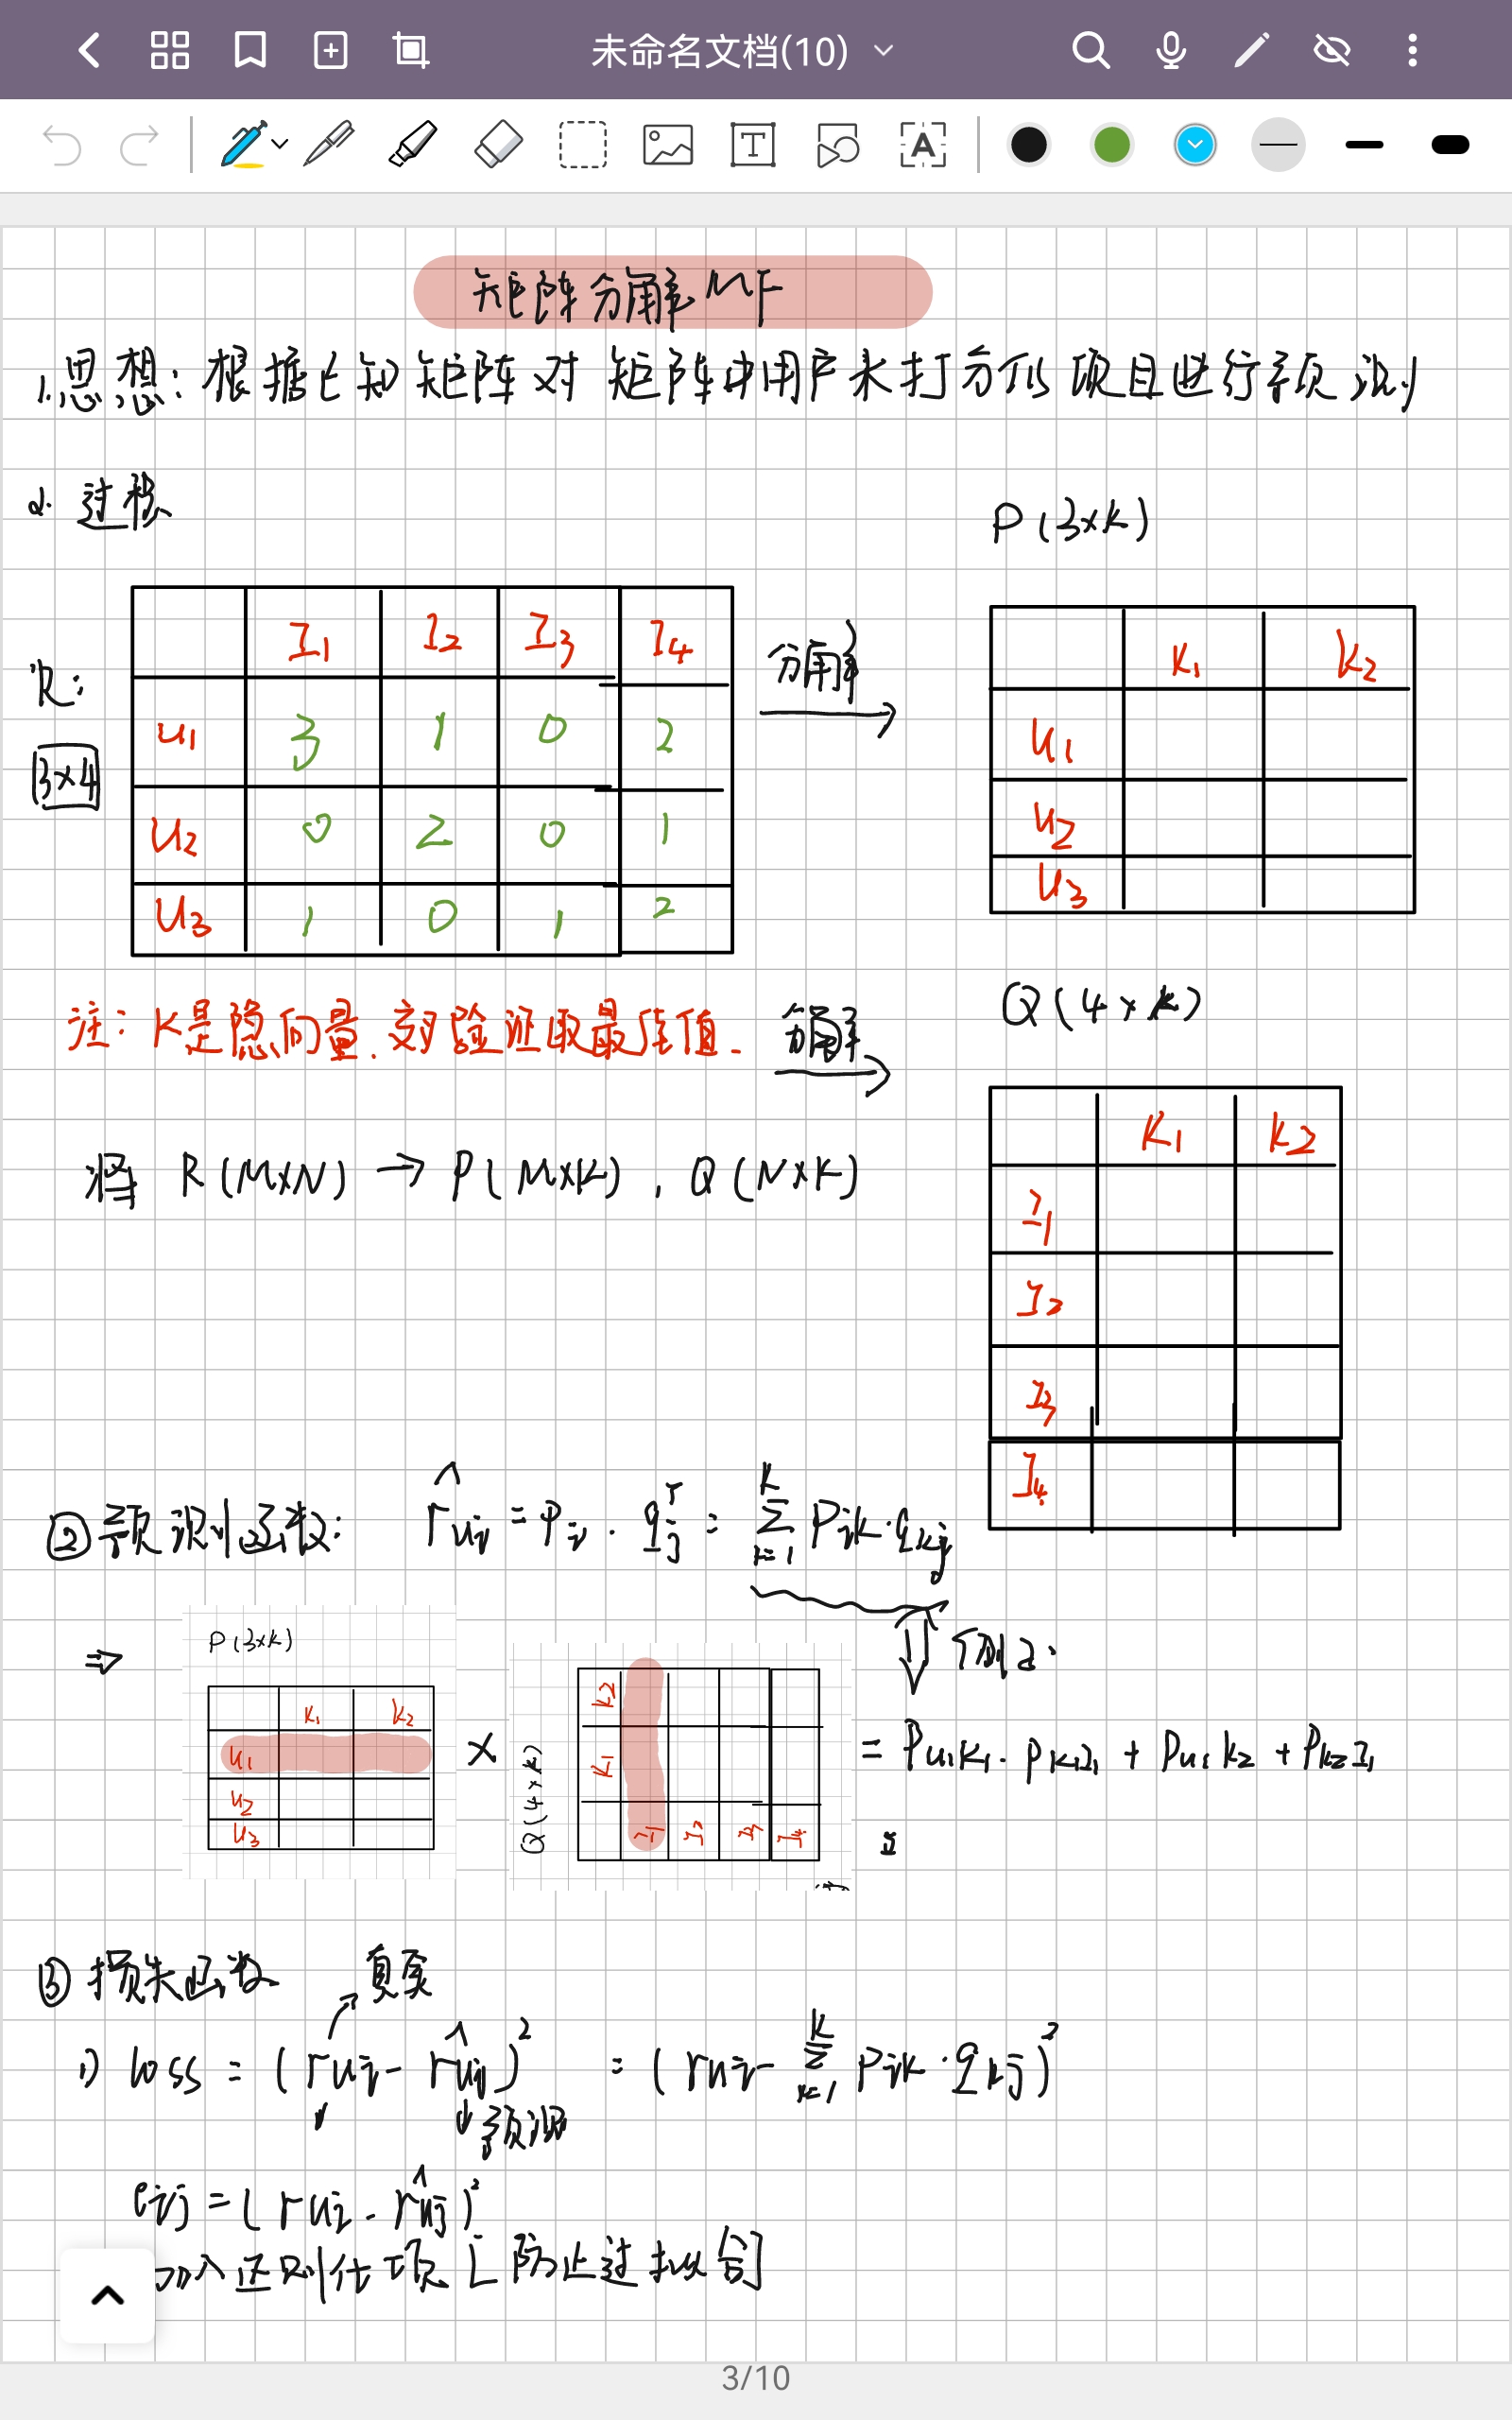 未命名文档(10)
矩阵分解MF
1.思想：根据已知矩阵对矩阵中用户未打分的项目进行预测
2. 过程
P(3×K)
R:
3×4
I1 I2 I3 I4
u1 3 1 0 2
u2 0 2 0 1
u3 1 0 1 2
分解
K1 K2
u1
u2
u3
注：K是隐向量.交叉验证取最佳值.
分解
Q(4×K)
K1 K2
I1
I2
I3
I4
将 R(M×N) → P(M×K), Q(N×K)
②预测函数: r̂ui = Pi · qj^T = Σ(k=1, K) Pik·qkj
⇒
P(3×K)
K1 K2
u1
u2
u3
×
Q(4×K)
K2
K1
I1 I2 I3 I4
⇓ 例2:
= Pu1K1 · PK1I1 + Pu1K2 + PK2I1
③损失函数
真实
1) loss = (rui - r̂uj)² = (rui - Σ(k=1, K) Pik·qkj)²
预测
eij = (rui - r̂uj)²
加入正则化项[防止过拟合]
3/10